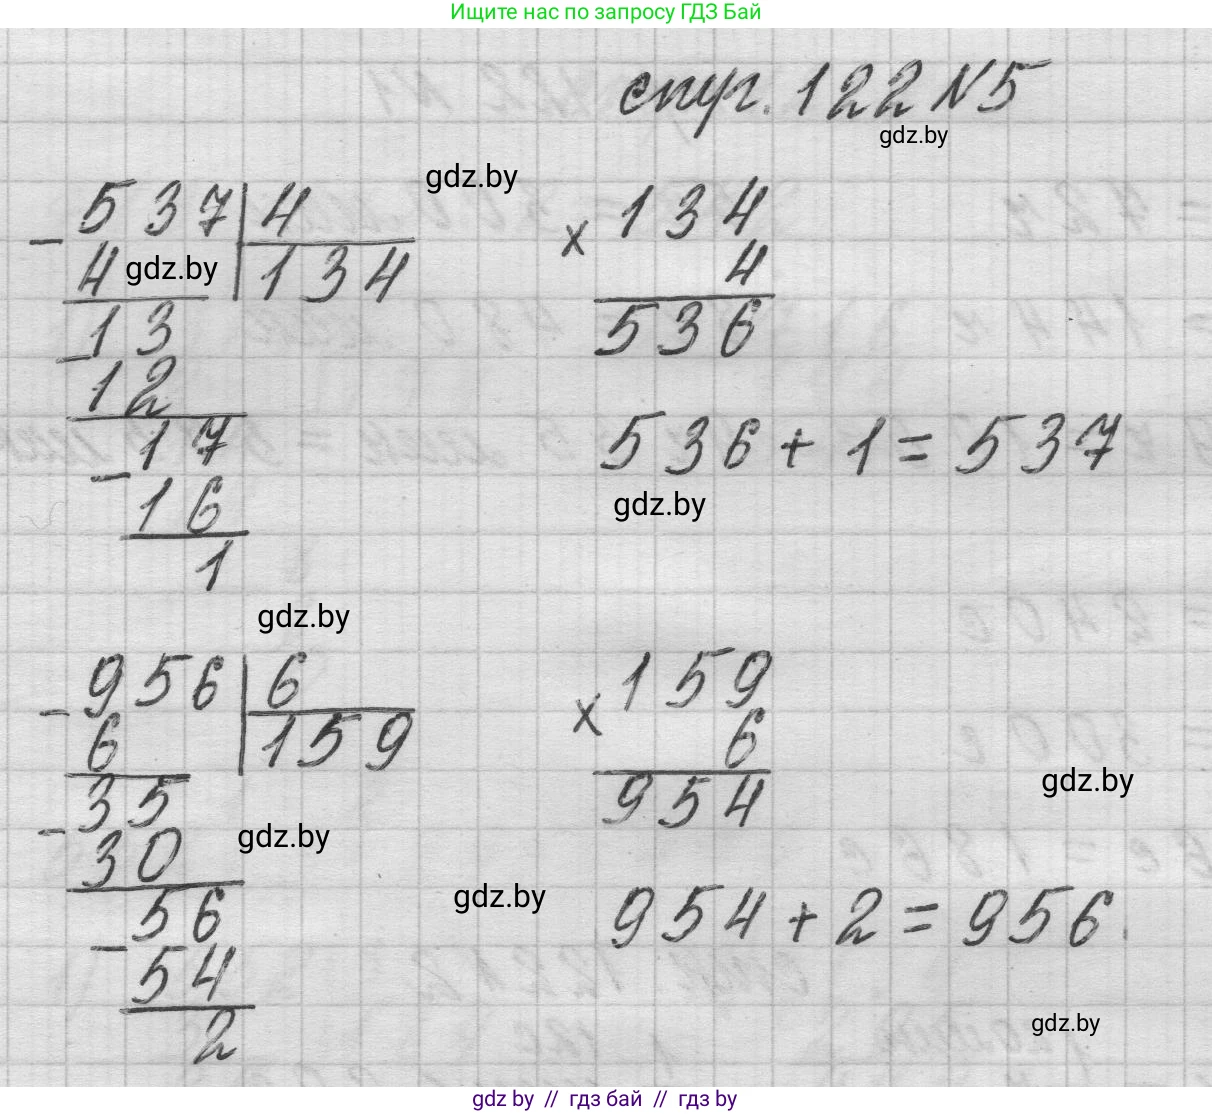 Ищите нас по запросу ГДЗ Бай
стр. 122 N5
gdz.by
gdz.by
- 537 | 4
4 | 134
gdz.by
- 13
12
- 17
16
1
× 134
4
536
536 + 1 = 537
gdz.by
gdz.by
- 956 | 6
6 | 159
- 35
30
gdz.by
- 56
54
2
× 159
6
954
gdz.by
gdz.by
954 + 2 = 956.
gdz.by
gdz by // гдз бай // gdz by